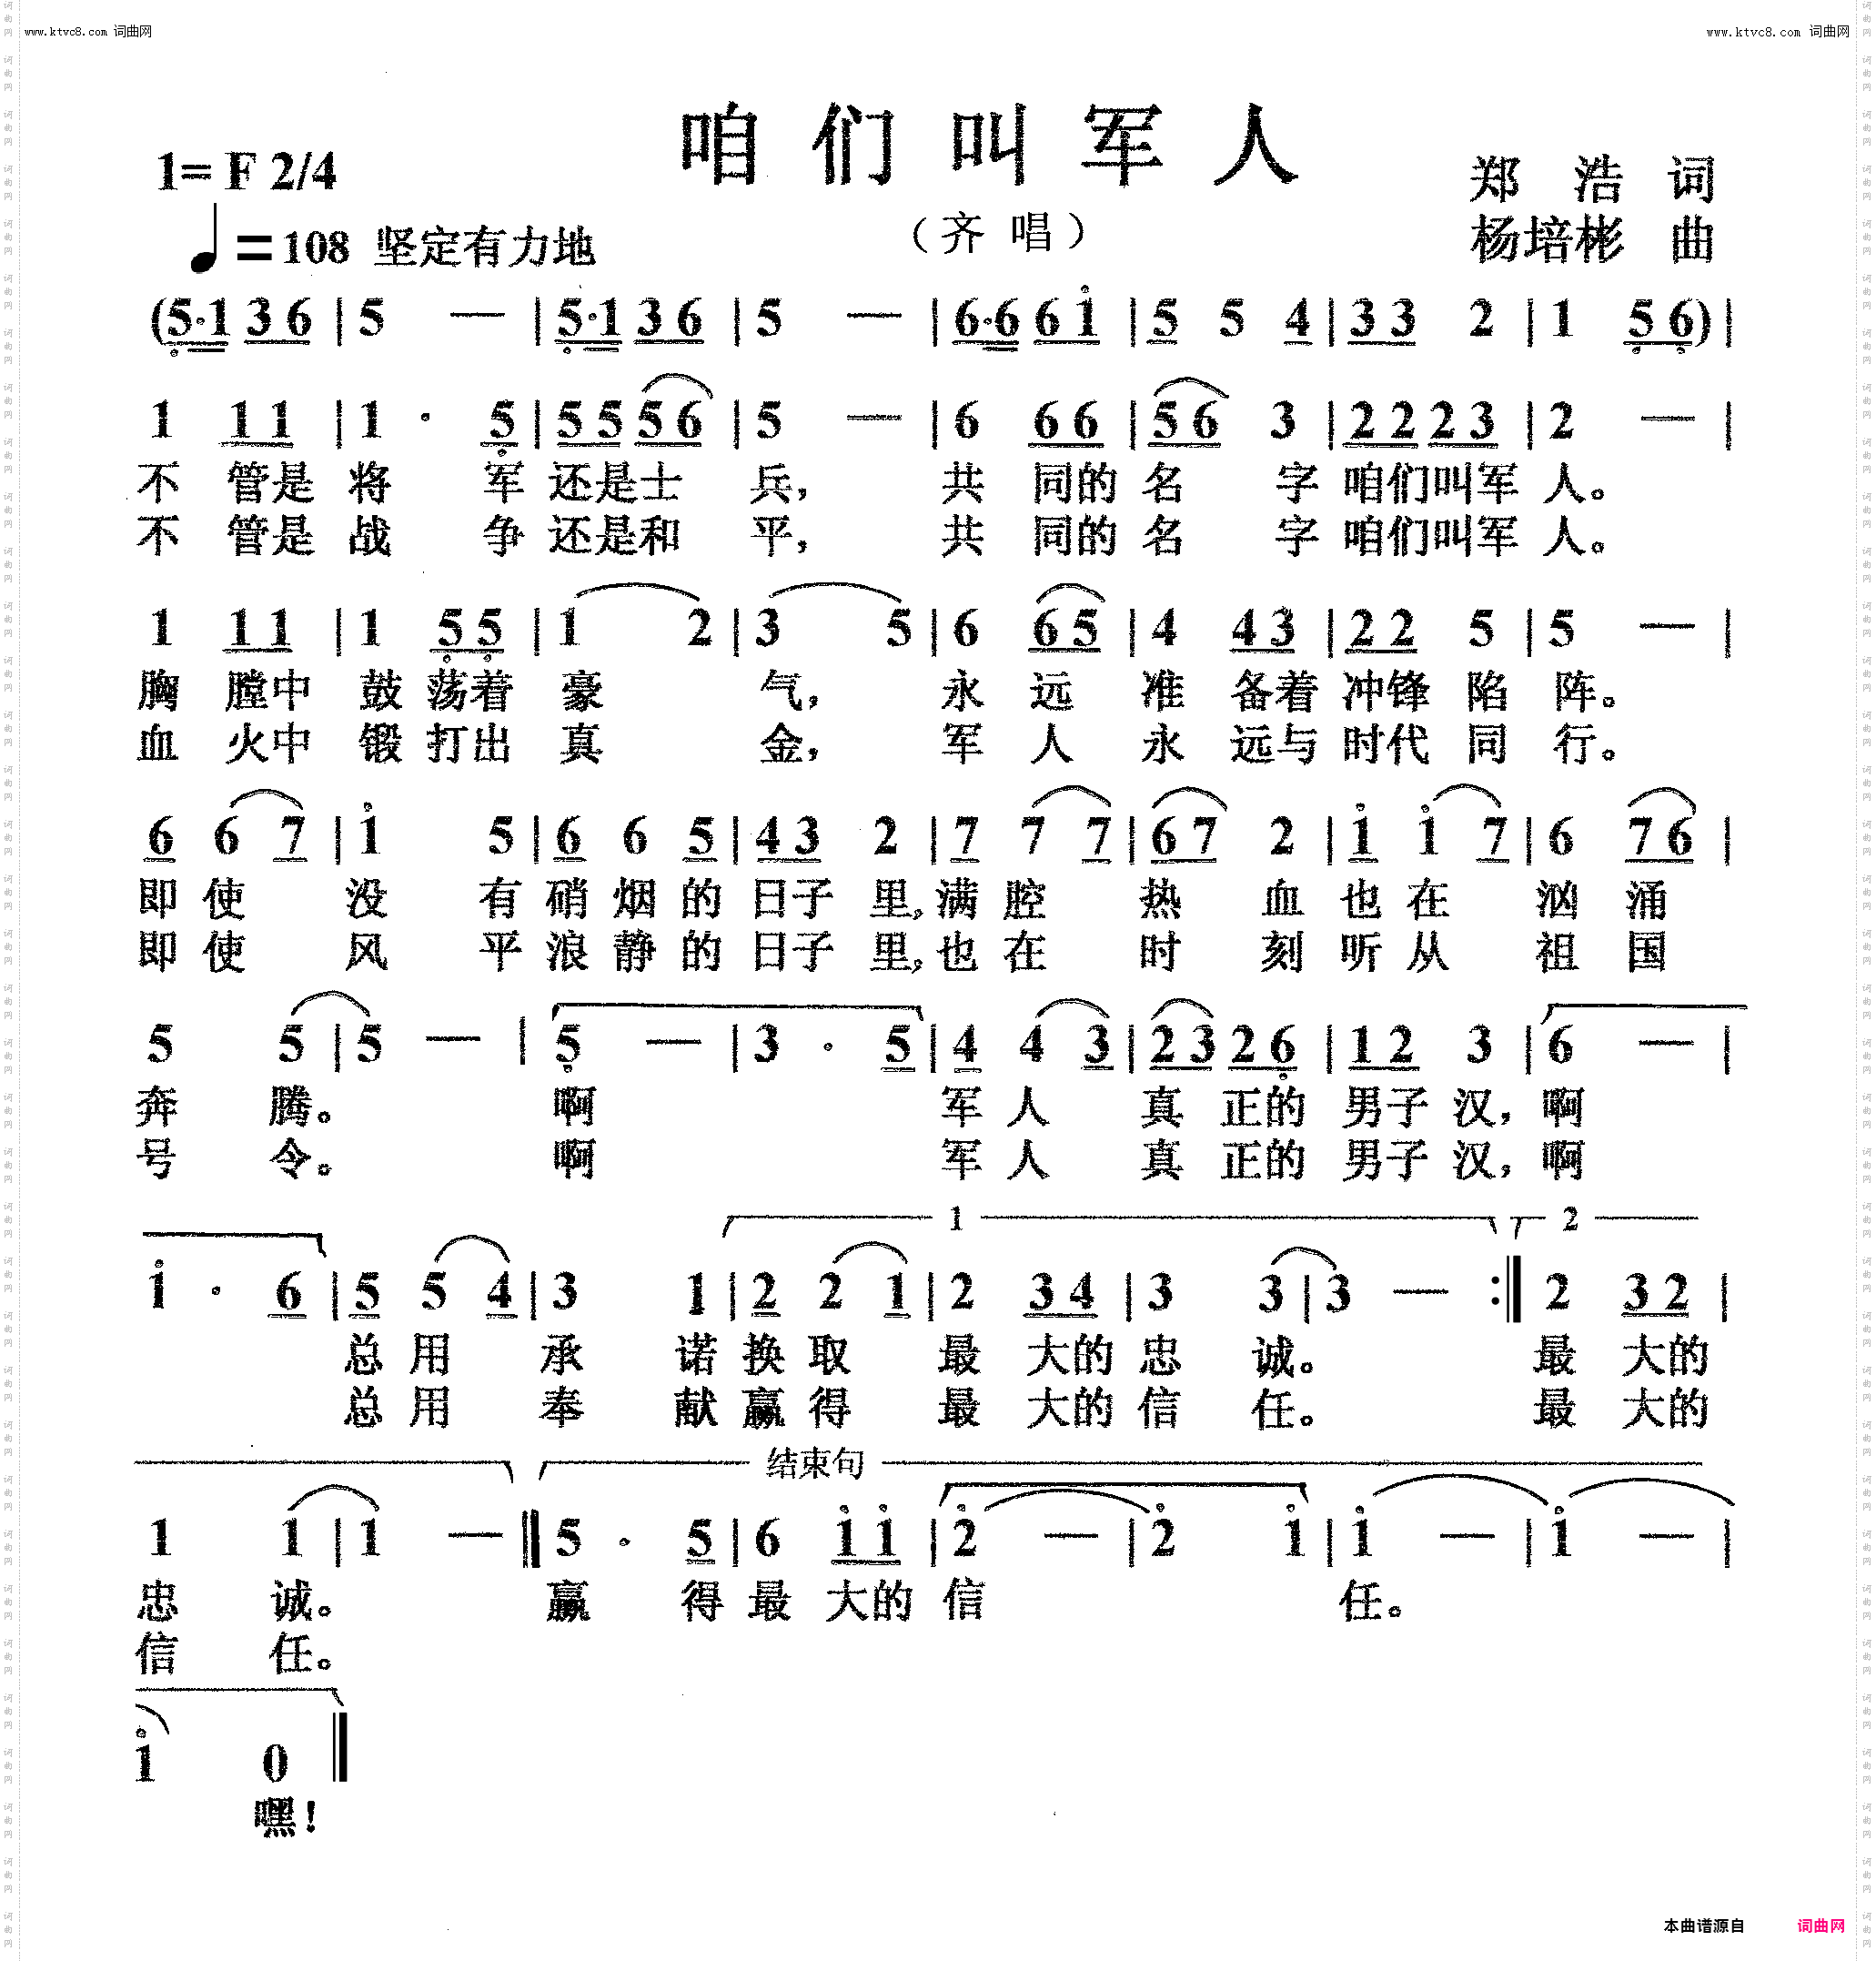 www.ktvc8.com 词曲网
www.ktvc8.com 词曲网
咱们叫军人
1= F 2/4
郑 浩 词
♩=108 坚定有力地
(齐唱)
杨培彬 曲
(5·1 36 | 5 — | 5·1 36 | 5 — | 6·6 6i | 5 5 4 | 33 2 | 1 56) |
1 11 | 1 · 5 | 55 56 | 5 — | 6 66 | 56 3 | 22 23 | 2 — |
不 管是 将 军 还是士 兵, 共 同的 名 字 咱们叫军 人。
不 管是 战 争 还是和 平, 共 同的 名 字 咱们叫军 人。
1 11 | 1 55 | 1 2 | 3 5 | 6 65 | 4 43 | 22 5 | 5 — |
胸 膛中 鼓 荡着 豪 气, 永 远 准 备着 冲锋 陷 阵。
血 火中 锻 打出 真 金, 军 人 永 远与 时代 同 行。
6 6 7 | i 5 | 6 6 5 | 43 2 | 7 7 7 | 67 2 | i i 7 | 6 76 |
即 使 没 有 硝 烟 的 日子 里,满 腔 热 血 也 在 汹 涌
即 使 风 平 浪 静 的 日子 里,也 在 时 刻 听 从 祖 国
5 5 | 5 — | 5 — | 3 · 5 | 4 4 3 | 23 26 | 12 3 | 6 — |
奔 腾。 啊 军 人 真 正的 男子 汉, 啊
号 令。 啊 军 人 真 正的 男子 汉, 啊
1 2
i · 6 | 5 5 4 | 3 1 | 2 2 1 | 2 34 | 3 3 | 3 — :‖ 2 32 |
总 用 承 诺 换 取 最 大的 忠 诚。 最 大的
总 用 奉 献 赢 得 最 大的 信 任。 最 大的
结束句
1 1 | 1 — ‖ 5 · 5 | 6 ii | 2 — | 2 i | i — | i — |
忠 诚。 赢 得 最 大的 信 任。
信 任。
i 0 ‖
嘿!
本曲谱源自 词曲网